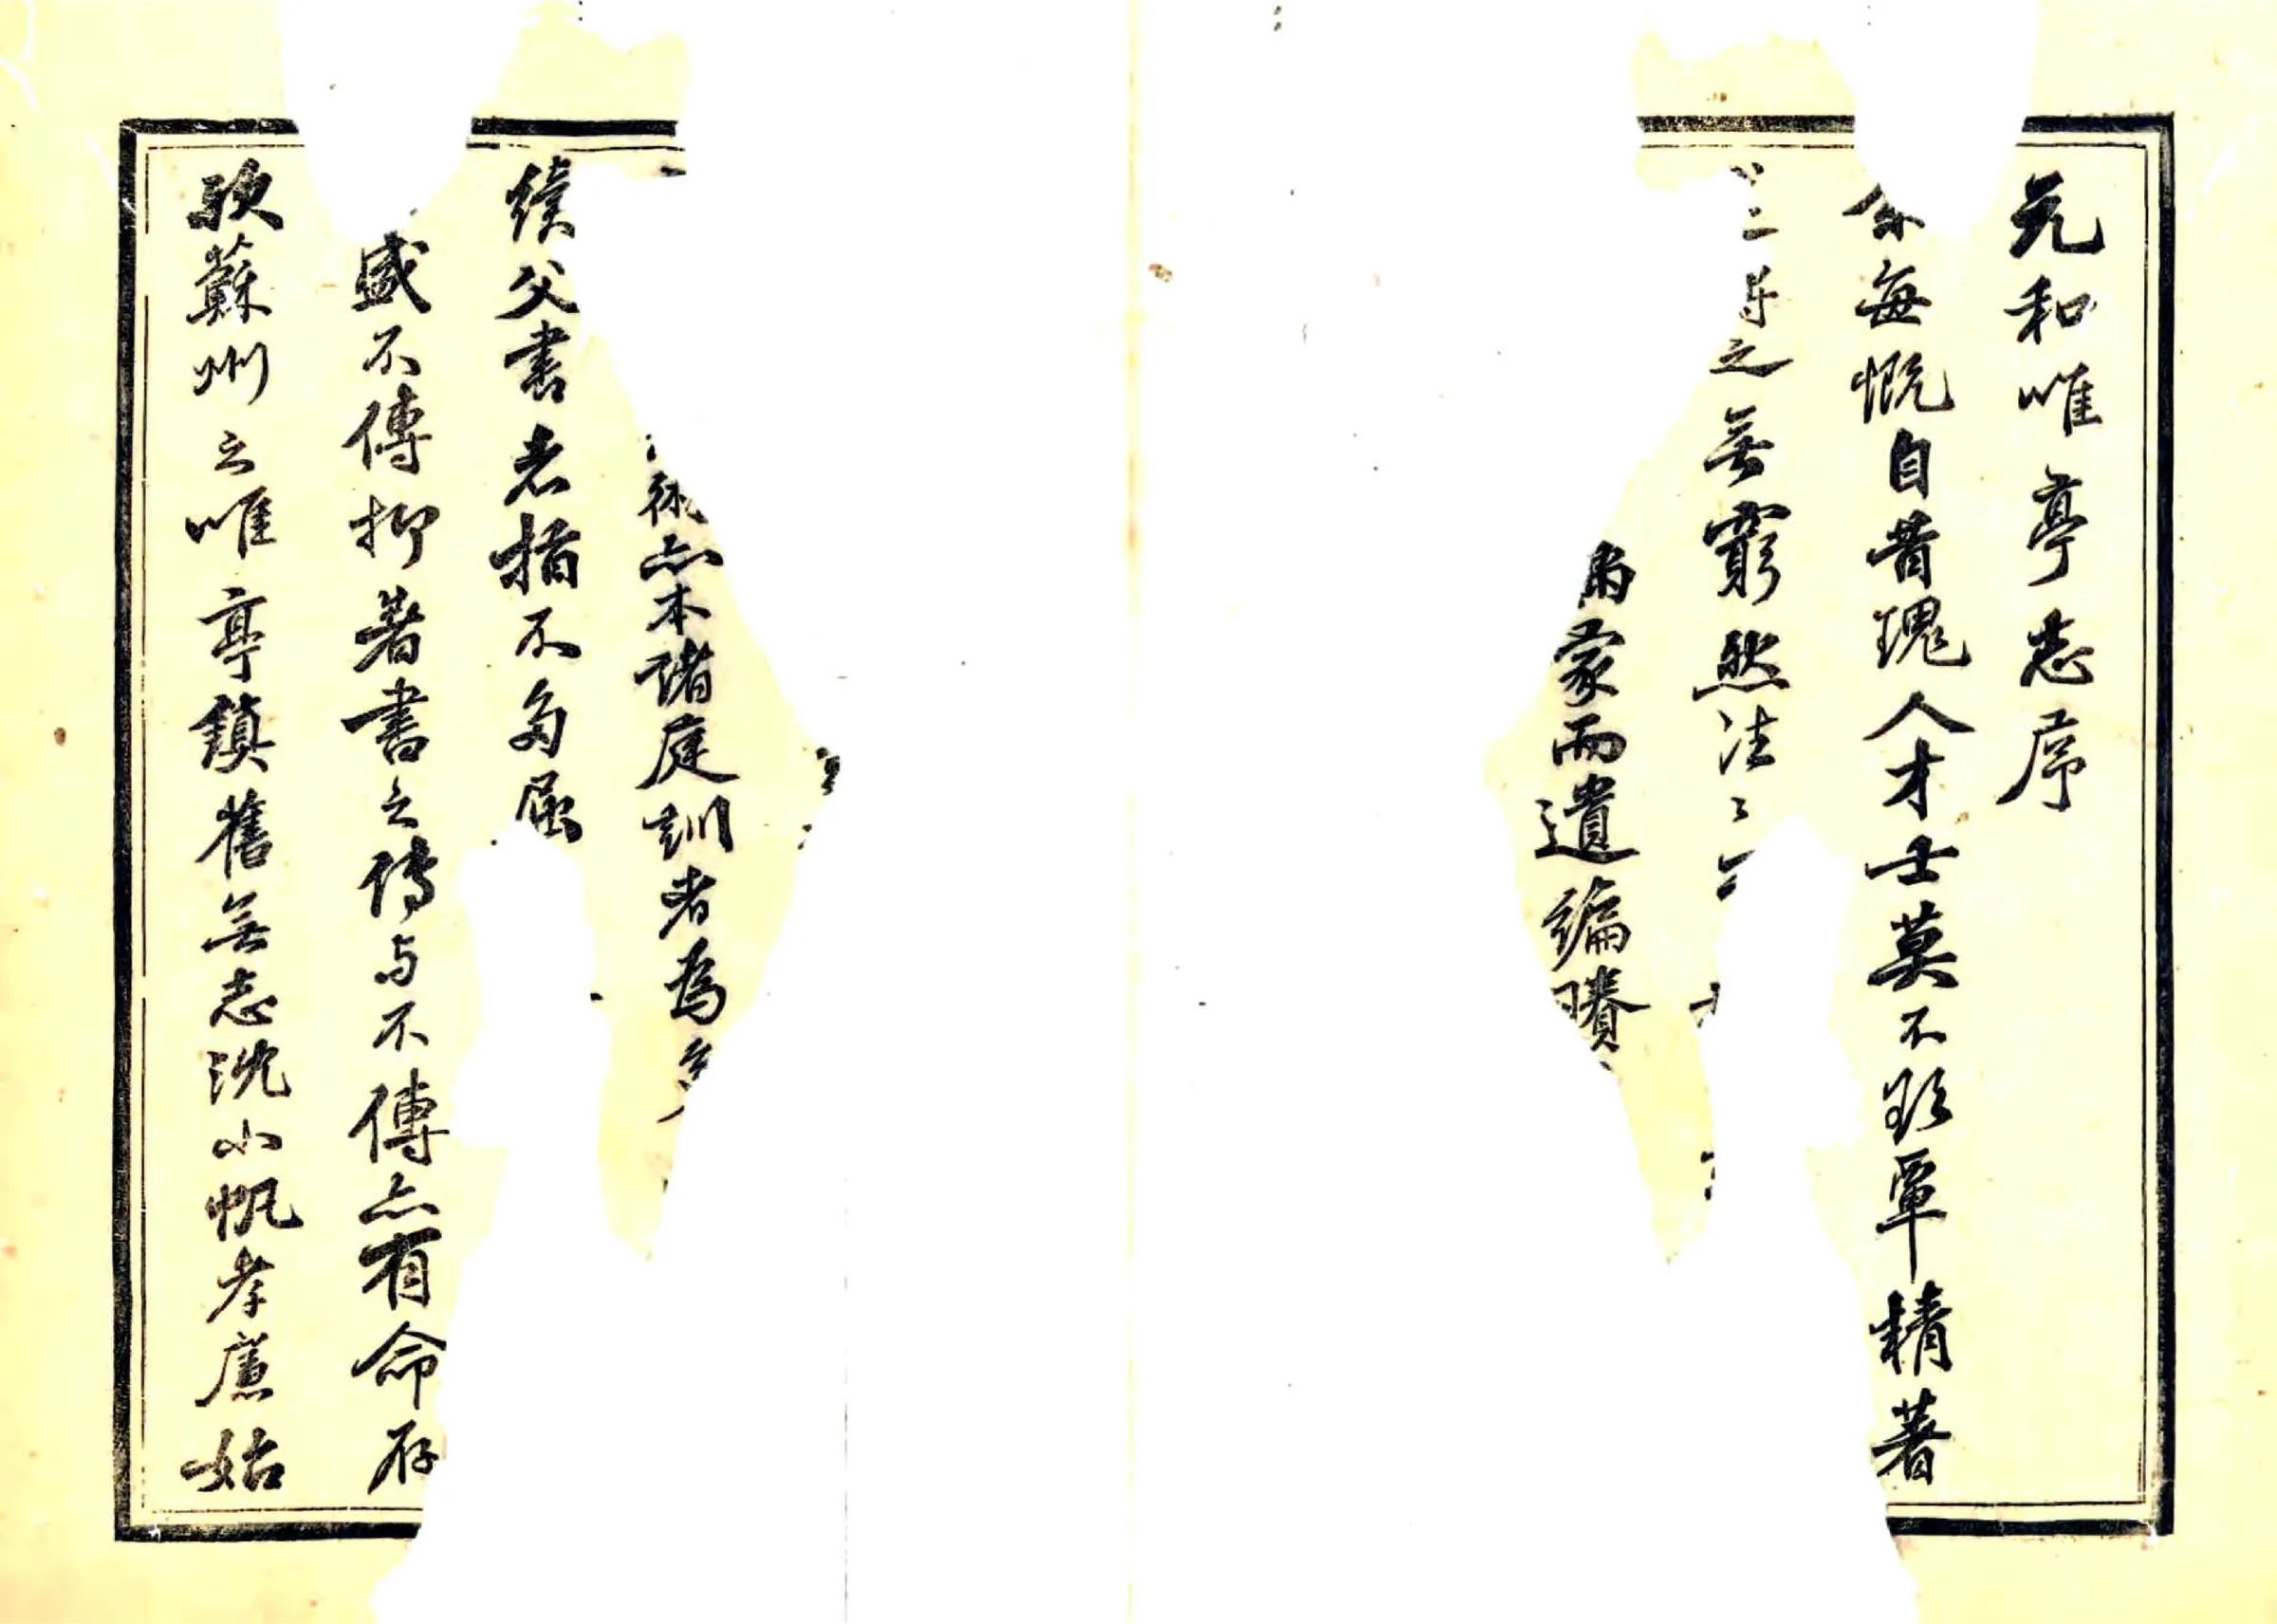 元和唯亭志序
余每慨自昔瑰人才士莫不殫精著
之無窮然往〻
蒙而遺編賸
術亦本諸庭訓者為
續父書者指不多屈
盛不傳抑著書之傳与不傳亦有命存
歟蘇州之唯亭鎮舊無志沈小帆孝廉始